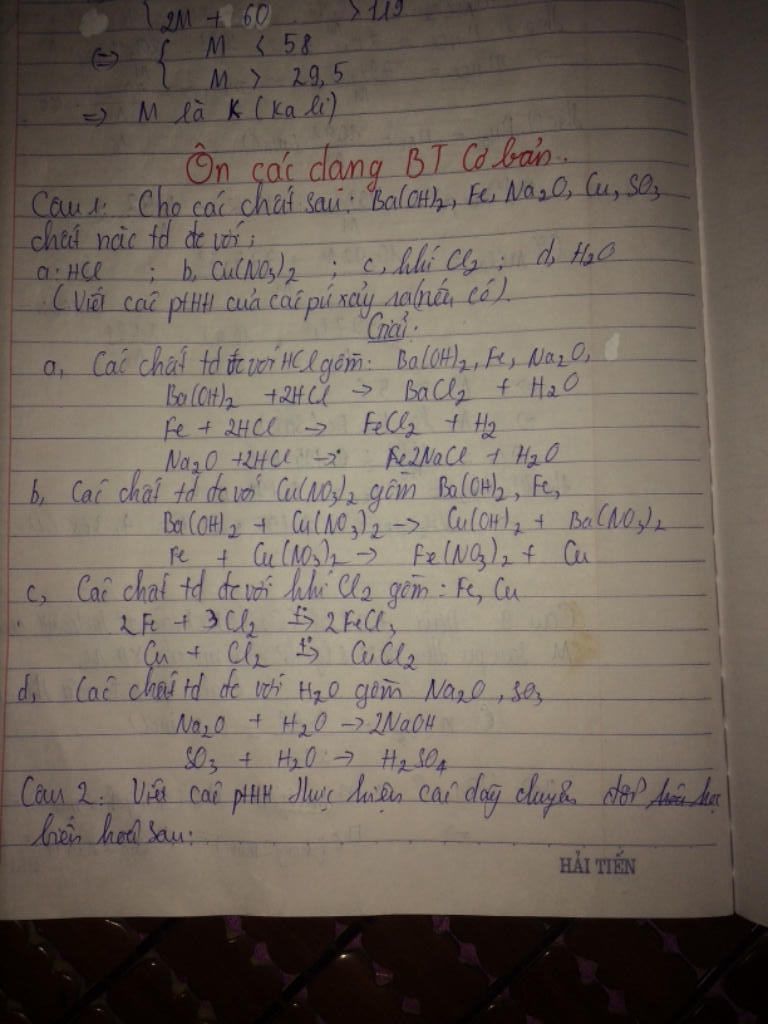 2M + 60 > 119
⇔ { M < 58
M > 29,5
=> M là K (Kali)
Ôn các dạng BT Cơ bản.
Câu 1: Cho các chất sau: Ba(OH)₂, Fe, Na₂O, Cu, SO₃
chất nào td đc với:
a: HCl ; b, Cu(NO₃)₂ ; c, khí Cl₂ ; d, H₂O
(Viết các PTHH của các pứ xảy ra (nếu có).
Giải:
a, Các chất td đc với HCl gồm: Ba(OH)₂, Fe, Na₂O,
Ba(OH)₂ + 2HCl → BaCl₂ + H₂O
Fe + 2HCl → FeCl₂ + H₂
Na₂O + 2HCl → Fe2NaCl + H₂O
b, Các chất td đc với Cu(NO₃)₂ gồm Ba(OH)₂, Fe,
Ba(OH)₂ + Cu(NO₃)₂ → Cu(OH)₂ + Ba(NO₃)₂
Fe + Cu(NO₃)₂ → Fe(NO₃)₂ + Cu
c, Các chất td đc với khí Cl₂ gồm: Fe, Cu
2Fe + 3Cl₂ t°→ 2FeCl₃
Cu + Cl₂ t°→ CuCl₂
d, Các chất td đc với H₂O gồm Na₂O, SO₃
Na₂O + H₂O → 2NaOH
SO₃ + H₂O → H₂SO₄
Câu 2: Viết các PTHH thực hiện các dãy chuyển đổi hóa học
biến hoá sau:
HẢI TIẾN